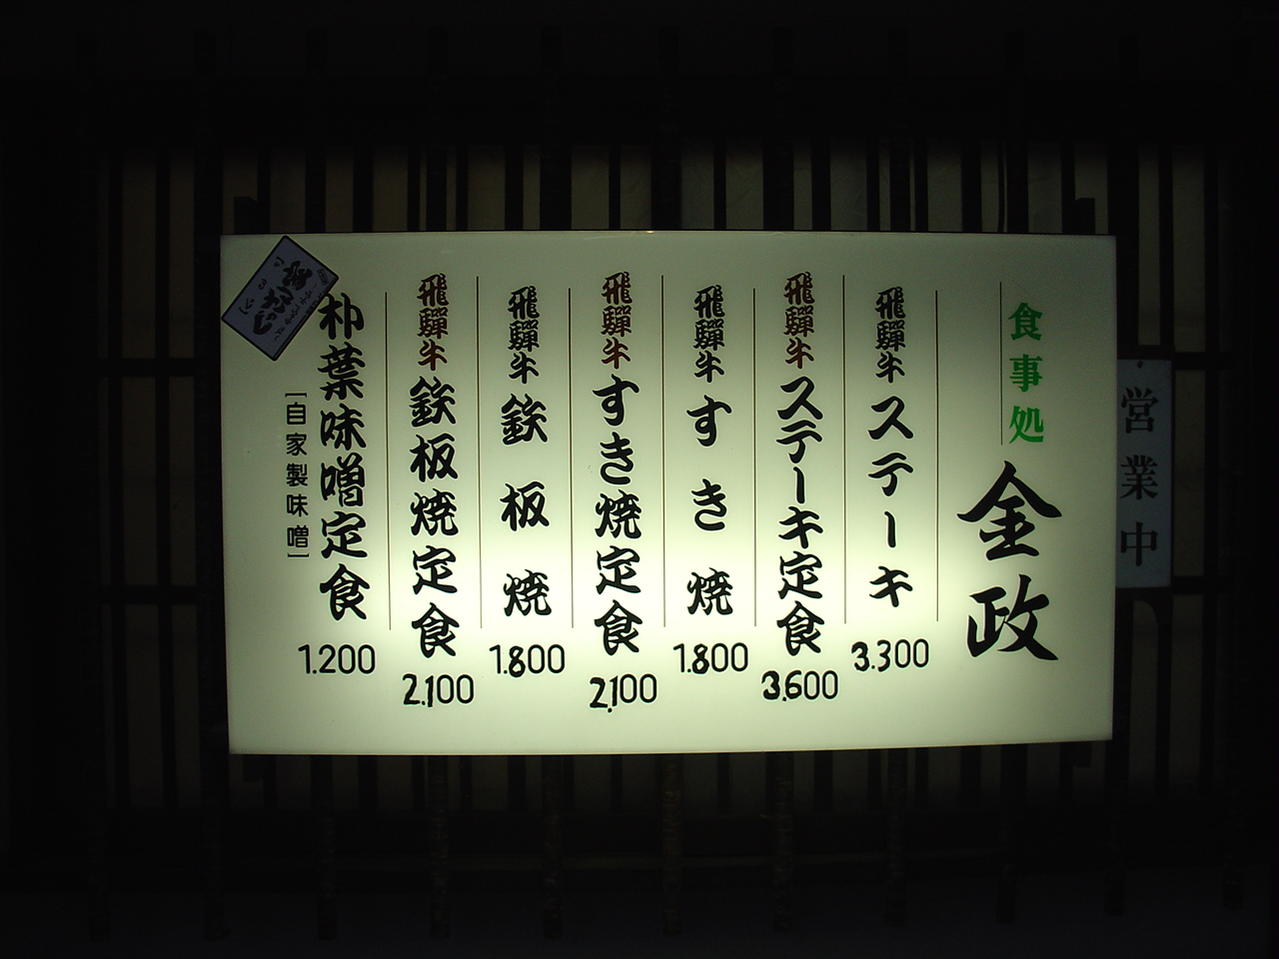 営業中
食事処
金政
飛騨牛ステーキ
3.300
飛騨牛ステーキ定食
3.600
飛騨牛すき焼
1.800
飛騨牛すき焼定食
2.100
飛騨牛鉄板焼
1.800
飛騨牛鉄板焼定食
2.100
朴葉味噌定食
[自家製味噌]
1.200